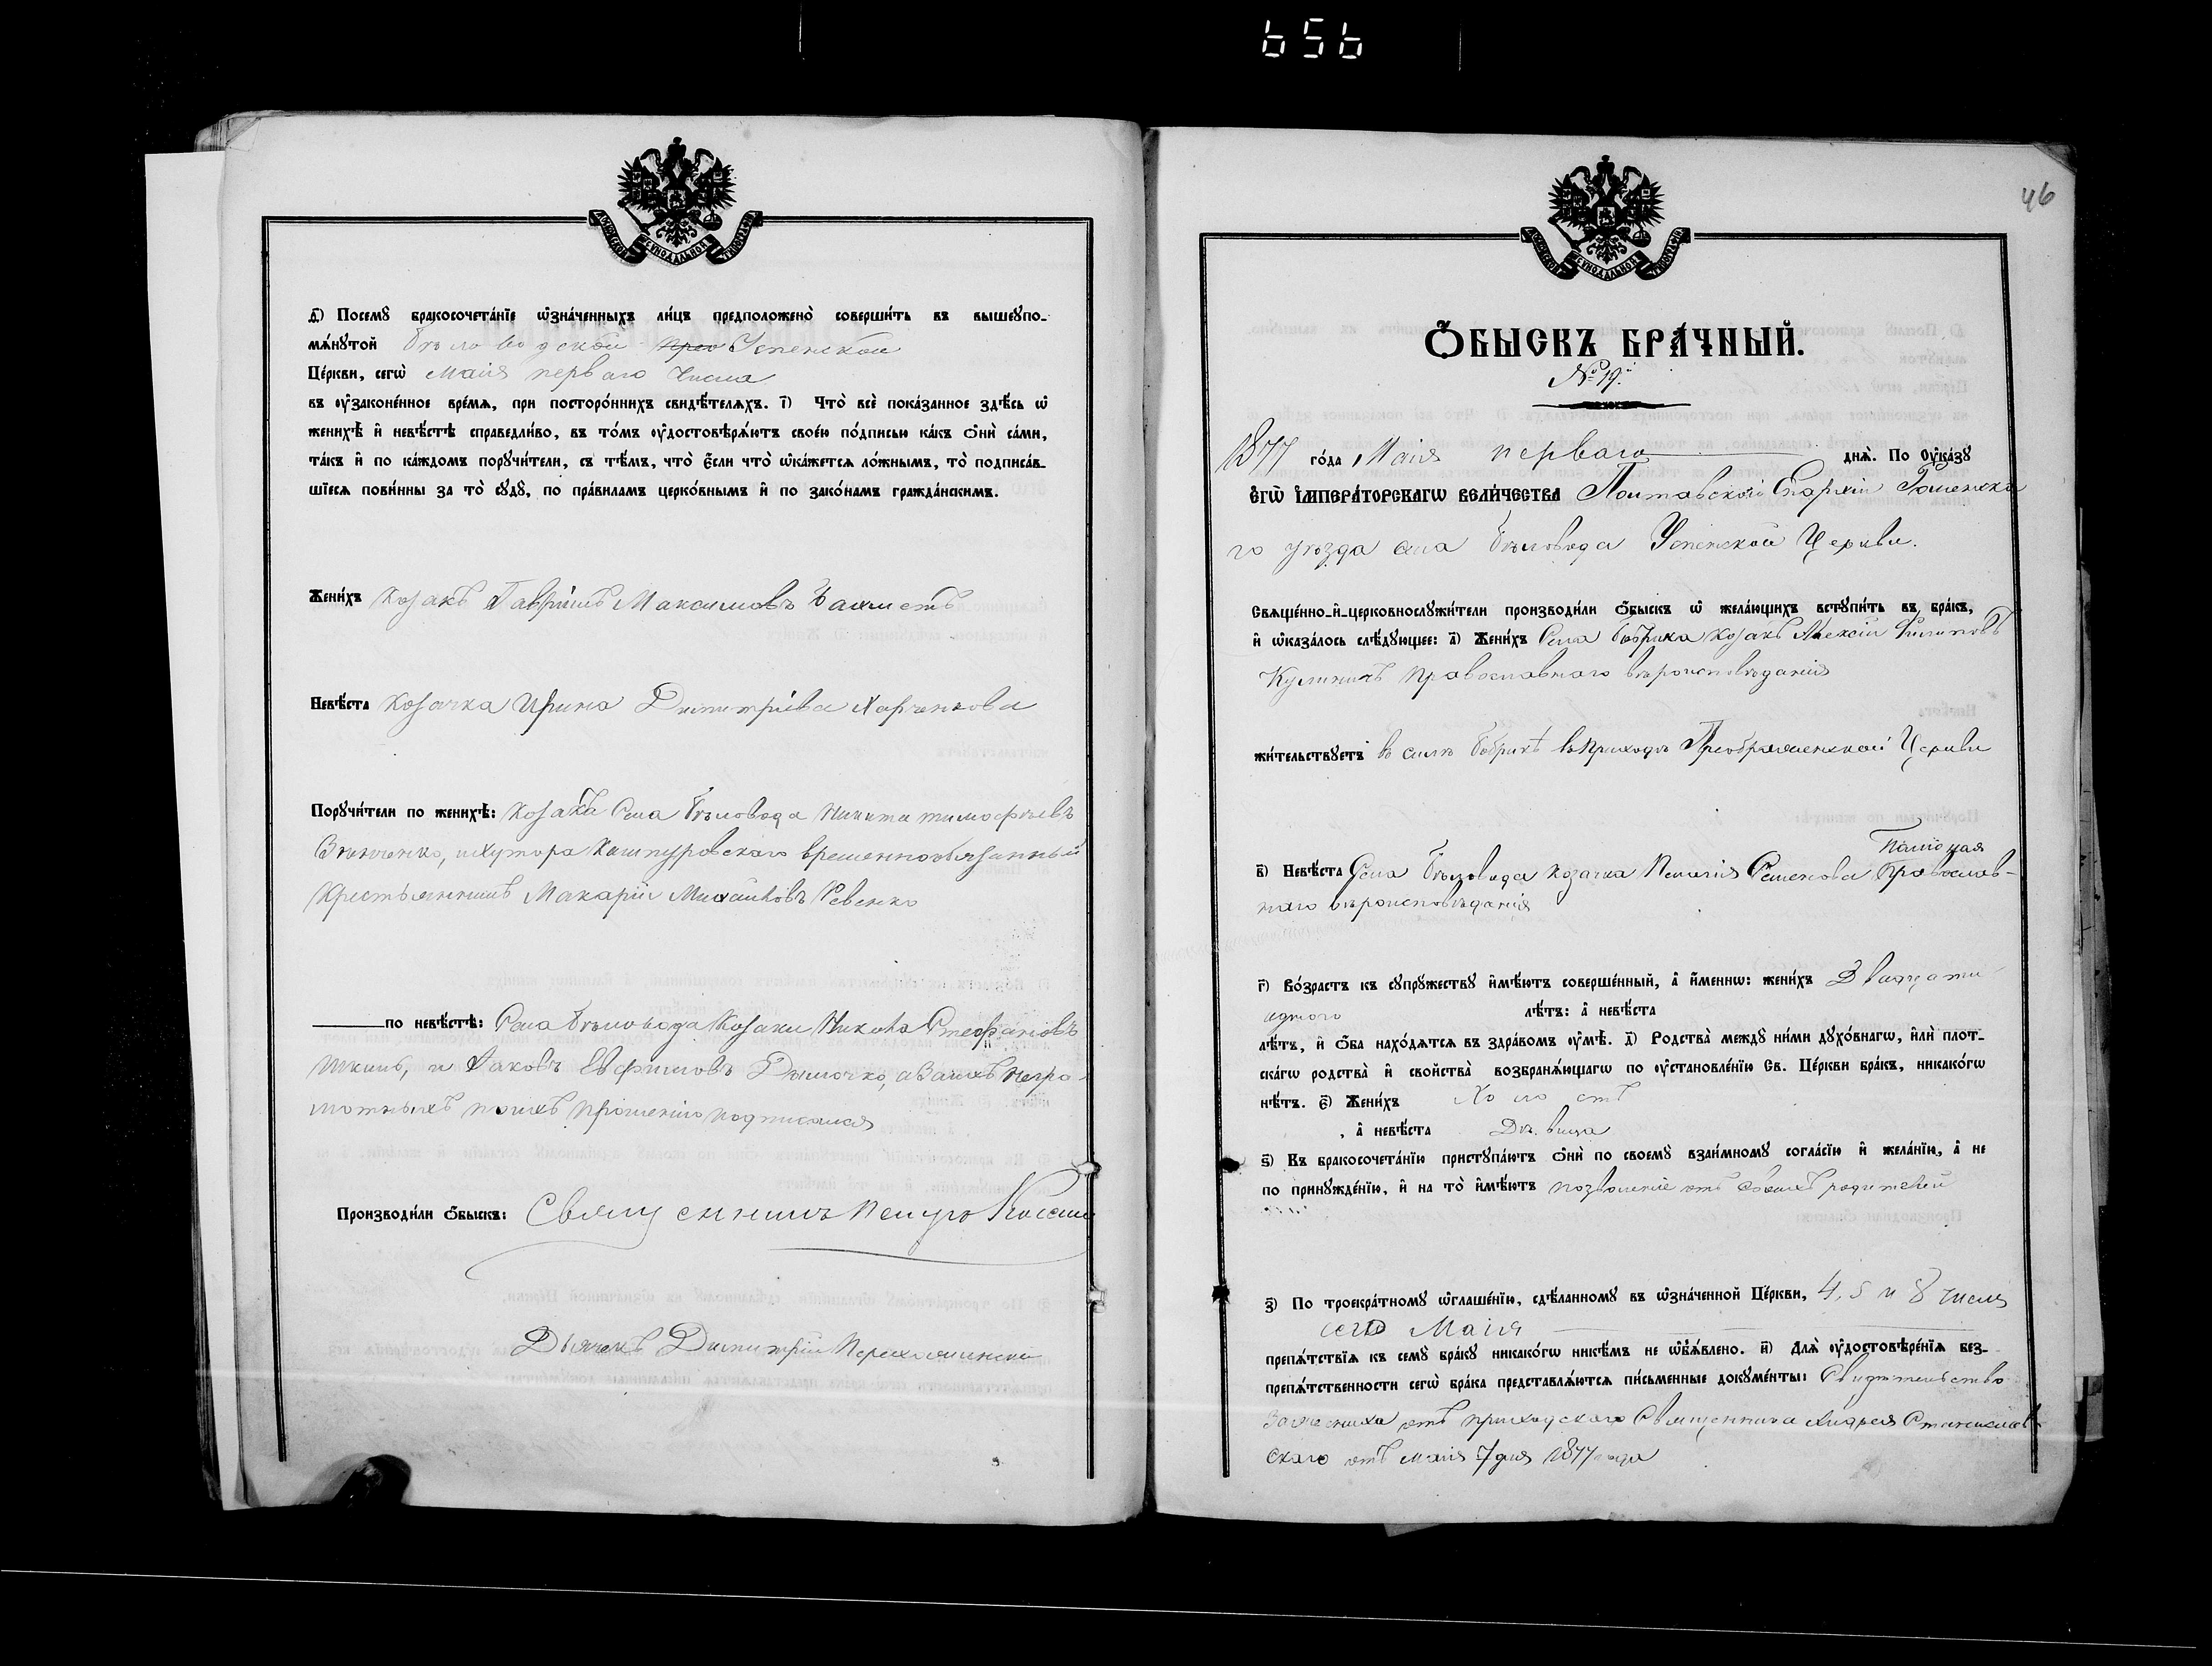 656
МОСКОВСКОЙ СѴНОДАЛЬНОЙ ТИПОГРАФІИ
д҃) Посемꙋ бракосочета́нїе ѡ҆зна́ченныхъ ли́цъ предположено̀ соверши́ть въ вышеꙋпо-
мѧ́нꙋтой Бѣловодской Успенской
Це́ркви, сегѡ̀ Маія перваго числа
въ ᲂу҆зако́ненное вре́мѧ, при посторо́ннихъ свидѣ́телѧхъ. і҃) Что̀ всѐ пока́занное здѣ́сь ѡ҆
женихѣ̀ и҆ невѣ́стѣ справедли́во, въ то́мъ ᲂу҆достовѣрѧ́ютъ свое́ю по́дписью ка́къ ѻ҆нѝ са́ми,
та́къ и҆ по ка́ждомъ порꙋчи́тели, съ тѣ́мъ, что̀ є҆́сли что̀ ѡ҆ка́жетсѧ ло́жнымъ, то̀ подписа́в-
шїесѧ пови́нны за то̀ сꙋдꙋ̀, по пра́виламъ церко́внымъ и҆ по зако́намъ гражда́нскимъ.
Жени́хъ Козакъ Гавріилъ Максимовъ
Невѣ́ста Козачка Ирина Димитріева Харченкова
Порꙋчи́тели по женихѣ̀: Козакъ Села Бѣловода Никита Тимофѣевъ
Зѣнченко, и Хутора Кашпуровскаго временнообязанный
Крестьянинъ Макарій Михайловъ Ревенко
по невѣ́стѣ: Села Бѣловода Козаки Никита Стефановъ
и Яковъ Евфимовъ Дымочко, а За нихъ негра-
мотныхъ поихъ прошенію подписался
Производи́ли ѻ҆́быскъ: Священникъ Петръ
Дьячекъ Димитрій
46
МОСКОВСКОЙ СѴНОДАЛЬНОЙ ТИПОГРАФІИ
Ѻ҆́БЫСКЪ БРА́ЧНЫЙ.
№ 19.
1877 го́да Маія перваго днѧ̀. По Оу҆ка́зꙋ
Є҆ГѠ̀ И҆МПЕРА́ТОРСКАГѠ ВЕЛИ́ЧЕСТВА Полтавской Епархіи Роменска
го уѣзда села Бѣловода Успенской Церкви.
Свѧще́нно-и҆-церковнослꙋжи́тели производи́ли ѻ҆́быскъ ѡ҆ жела́ющихъ встꙋпи́ть въ бра́къ,
и҆ ѡ҆каза́лось слѣ́дꙋющее: а҃) Жени́хъ Села Бобрика козакъ Алексій Филиповъ
Кулиничъ Православнаго вѣроисповѣданія
жи́тельствꙋетъ въ селѣ Бобрикѣ въ Приходѣ Преображенской Церкви
в҃) Невѣ́ста Села Бѣловода козачка Пелагія Семенова Православ-
наго вѣроисповѣданія
г҃) Во́зрастъ къ сꙋпрꙋ́жествꙋ и҆мѣ́ютъ соверше́нный, а҆ и҆́меннѡ: жени́хъ Двадцати
одного лѣ́тъ: а҆ невѣ́ста
лѣ́тъ, и҆ ѻ҆́ба нахо́дѧтсѧ въ здра́вомъ ᲂу҆мѣ̀. д҃) Родства̀ междꙋ ни́ми дꙋхо́внагѡ, и҆лѝ пло́т-
скагѡ родства̀ и҆ сво́йства̀ возбранѧ́ющагѡ по ᲂу҆становле́нїю Св. Це́ркви бра́къ, никако́гѡ
нѣ́тъ. є҃) Жени́хъ Холостъ
, а҆ невѣ́ста Дѣвица
ѕ҃) Къ бракосочета́нїю пристꙋпа́ютъ ѻ҆нѝ по своемꙋ̀ взаи́мномꙋ согла́сїю и҆ жела́нїю, а҆ не
по принꙋжде́нїю, и҆ на то̀ и҆мѣ́ютъ позволеніе отъ своихъ родителей
з҃) По троекра́тномꙋ ѡ҆глаше́нїю, сдѣ́ланномꙋ въ ѡ҆зна́ченной Це́ркви, 4, 5 и 8 числа
сего Маія
препѧ́тствїѧ къ семꙋ̀ бра́кꙋ никако́гѡ никѣ́мъ не ѡ҆б̾ѧ́влено. и҃) Длѧ̀ ᲂу҆достовѣ́ренїѧ без-
препѧ́тственности сегѡ̀ бра́ка представлѧ́ютсѧ пи́сьменные докꙋме́нты: Свидѣтельство
За жениха отъ приходскаго Священника Андрея Станиславв-
скаго отъ маія 7 дня 1877 года